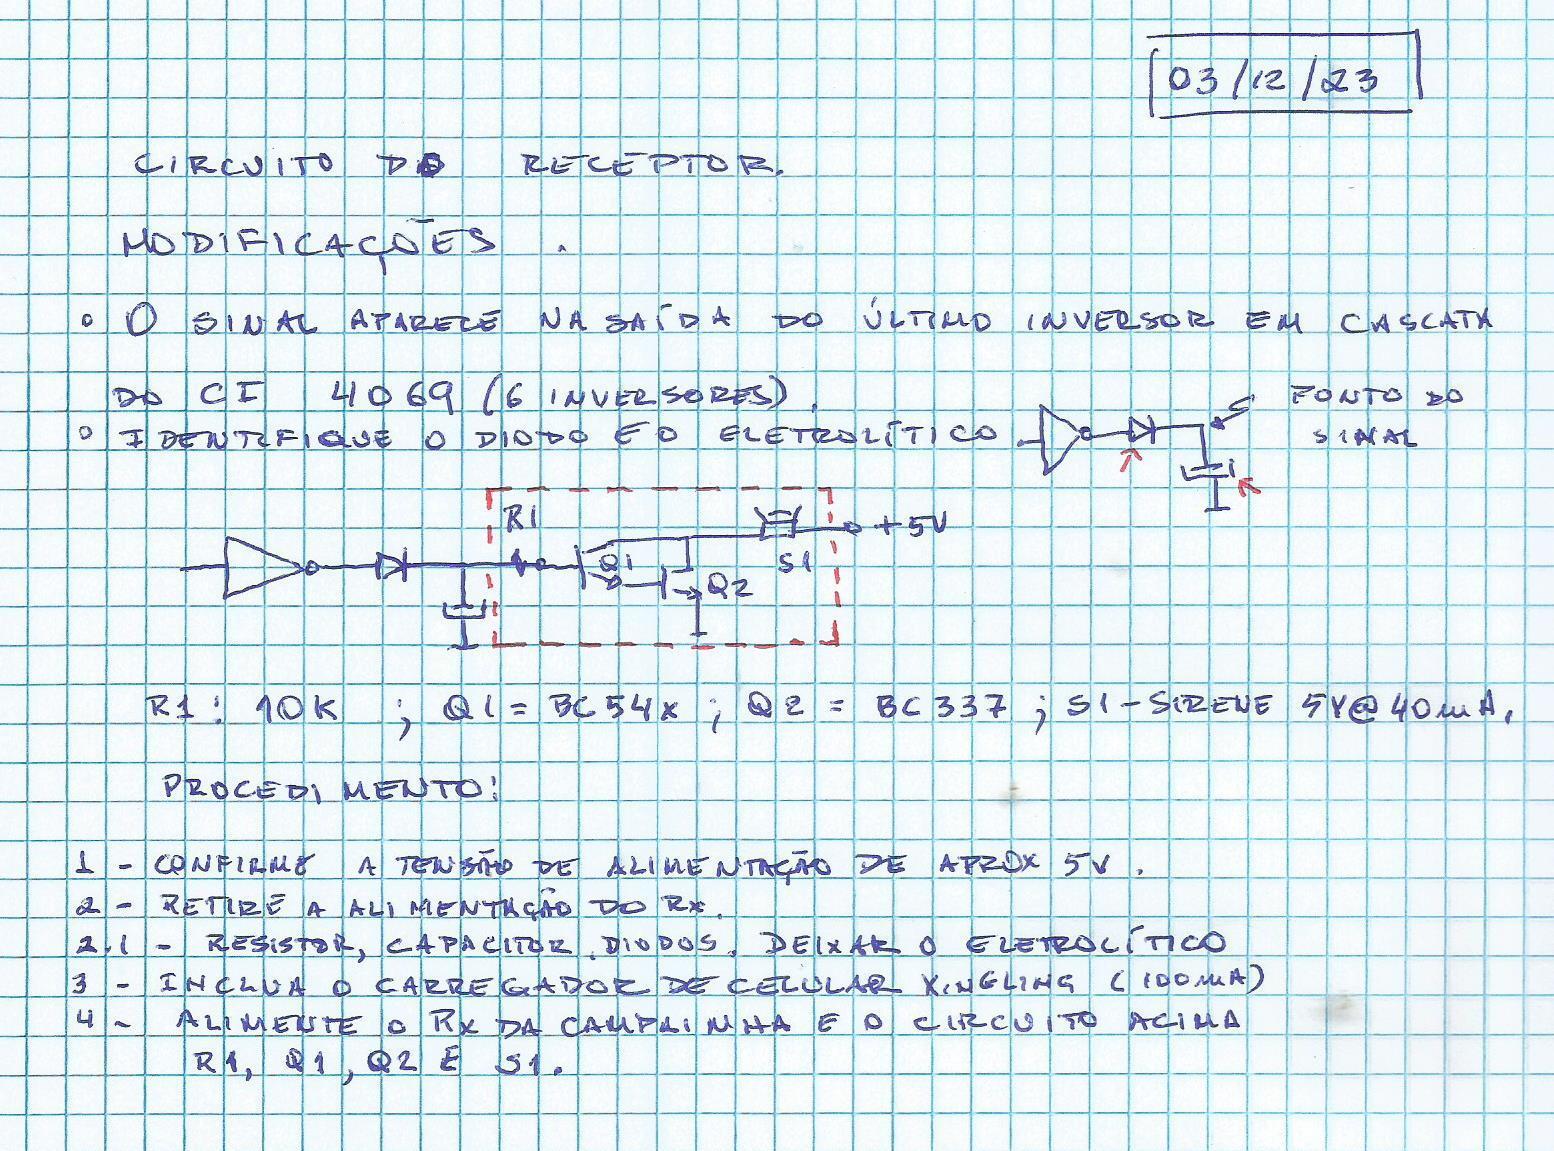 03/12/23
CIRCUITO DO RECEPTOR.
MODIFICAÇÕES.
O SINAL APARECE NA SAÍDA DO ÚLTIMO INVERSOR EM CASCATA
DO CI 4069 (6 INVERSORES).
IDENTIFIQUE O DIODO E O ELETROLÍTICO
PONTO DO
SINAL
R1
+5V
Q1
S1
Q2
R1: 10K ; Q1 = BC54x ; Q2 = BC337 ; S1 - SIRENE 5V@40mA.
PROCEDIMENTO:
1 - CONFIRME A TENSÃO DE ALIMENTAÇÃO DE APROX 5V.
2 - RETIRE A ALIMENTAÇÃO DO RX.
2.1 - RESISTOR, CAPACITOR, DIODOS. DEIXAR O ELETROLÍTICO
3 - INCLUA O CARREGADOR DE CELULAR XINGLING (100mA)
4 - ALIMENTE O RX DA CAMPAINHA E O CIRCUITO ACIMA
R1, Q1, Q2 E S1.